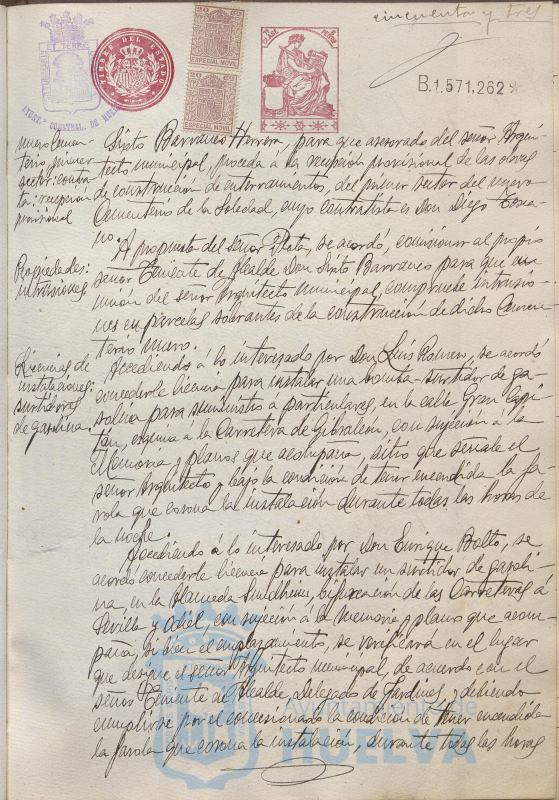 cincuenta y tres
AYUNT.º CONSTNAL. DE HUELVA
TIMBRE DEL ESTADO
20 20
ESPECIAL MOVIL
20 20
ESPECIAL MOVIL
B.1.571,262*
Sixto Barranco Herrera, para que asesorado del señor Arqui-
tecto municipal, proceda a la recepción provisional de las obras
de construcción de enterramientos, del primer sector del nuevo
Cementerio de la Soledad, cuyo contratista es Don Diego Tosca-
no.
nuevo Cemen-
terio, primer
sector: contra-
ta: recepción
provisional
A propuesta del señor Plata, se acordó, comisionar al propio
señor Teniente de Alcalde Don Sixto Barranco para que en
unión del señor Arquitecto municipal, compruebe intrusio-
nes en parcelas sobrantes de la construcción de dicho Cemen-
terio nuevo.
Propiedades:
intrusiones
Accediendo á lo interesado por Don Luis Romero, se acordó
concederle licencia para instalar una bomba-surtidor de ga-
solina para suministro á particulares, en la calle Gran Capi-
tán, esquina á la Carretera de Gibraleon, con sujeción á la
Memoria y planos que acompaña, sitio que señale el
señor Arquitecto y bajo la condición de tener encendida la fa-
rola que corona la instalación durante todas las horas de
la noche.
Licencias de
instalaciones:
surtidores
de gasolina.
Accediendo á lo interesado por Don Enrique Bolto, se
acordó concederle licencia para instalar un surtidor de gasoli-
na, en la Alameda Sundheim, bifurcación de las Carreteras á
Sevilla y Odiel, con sujeción á la Memoria y plano que acom-
paña, si bien el emplazamiento, se verificará en el lugar
que designe el señor Arquitecto municipal, de acuerdo con el
señor Teniente de Alcalde, Delegado de Jardines, y debiendo
cumplirse por el concesionario la condición de tener encendida
la farola que corona la instalación, durante todas las horas
Ayuntamiento de
HUELVA